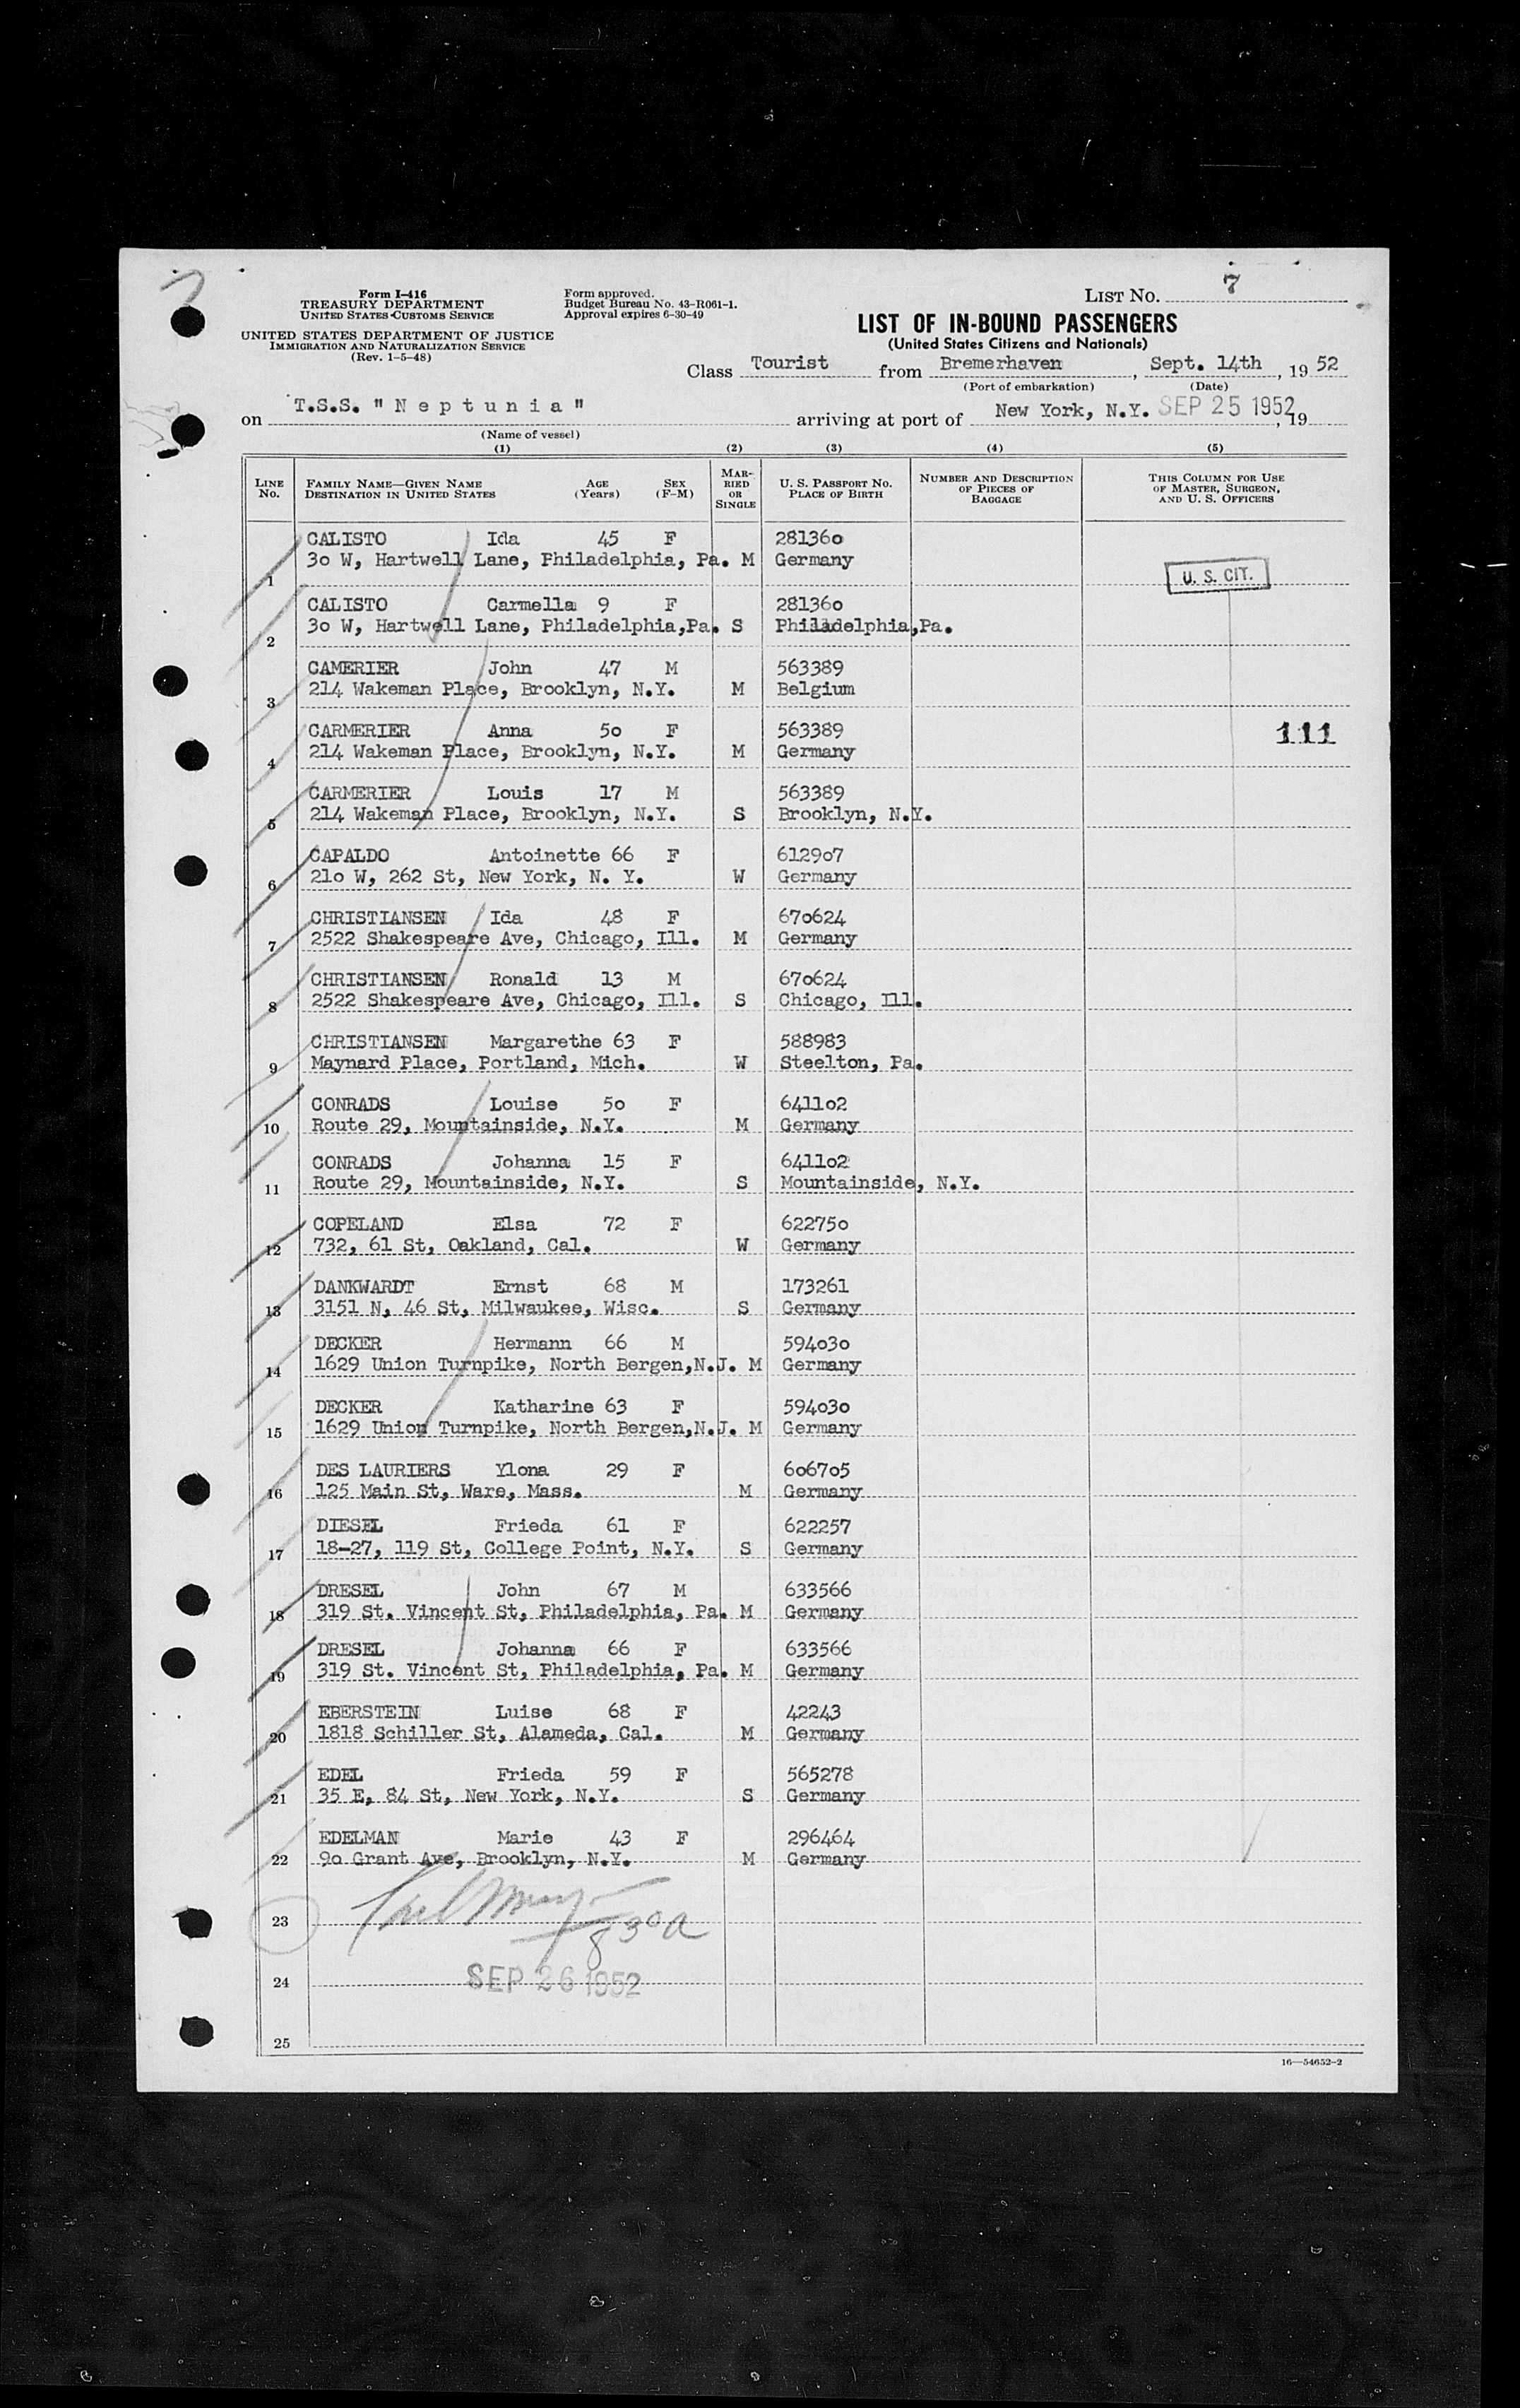 7
LIST NO. 7
Form I-416
TREASURY DEPARTMENT
UNITED STATES CUSTOMS SERVICE
UNITED STATES DEPARTMENT OF JUSTICE
IMMIGRATION AND NATURALIZATION SERVICE
(Rev. 1-5-48)
Form approved.
Budget Bureau No. 43-R061-1.
Approval expires 6-30-49
LIST OF IN-BOUND PASSENGERS
(United States Citizens and Nationals)
Class Tourist from Bremerhaven, Sept. 14th, 1952
(Port of embarkation) (Date)
on T.S.S. "Neptunia" arriving at port of New York, N.Y. SEP 25 1952, 19
(Name of vessel)
(1) (2) (3) (4) (5)
LINE NO. FAMILY NAME—GIVEN NAME DESTINATION IN UNITED STATES AGE (Years) SEX (F-M) MARRIED OR SINGLE U. S. PASSPORT NO. PLACE OF BIRTH NUMBER AND DESCRIPTION OF PIECES OF BAGGAGE THIS COLUMN FOR USE OF MASTER, SURGEON, AND U. S. OFFICERS
CALISTO Ida 45 F 281360
1 30 W, Hartwell Lane, Philadelphia, Pa. M Germany U. S. CIT.
CALISTO Carmella 9 F 281360
2 30 W, Hartwell Lane, Philadelphia,Pa. S Philadelphia,Pa.
CAMERIER John 47 M 563389
3 214 Wakeman Place, Brooklyn, N.Y. M Belgium
CARMERIER Anna 50 F 563389 111
4 214 Wakeman Place, Brooklyn, N.Y. M Germany
CARMERIER Louis 17 M 563389
5 214 Wakeman Place, Brooklyn, N.Y. S Brooklyn, N.Y.
CAPALDO Antoinette 66 F 612907
6 210 W, 262 St, New York, N. Y. W Germany
CHRISTIANSEN Ida 48 F 670624
7 2522 Shakespeare Ave, Chicago, Ill. M Germany
CHRISTIANSEN Ronald 13 M 670624
8 2522 Shakespeare Ave, Chicago, Ill. S Chicago, Ill.
CHRISTIANSEN Margarethe 63 F 588983
9 Maynard Place, Portland, Mich. W Steelton, Pa.
CONRADS Louise 50 F 641102
10 Route 29, Mountainside, N.Y. M Germany
CONRADS Johanna 15 F 641102
11 Route 29, Mountainside, N.Y. S Mountainside, N.Y.
COPELAND Elsa 72 F 622750
12 732, 61 St, Oakland, Cal. W Germany
DANKWARDT Ernst 68 M 173261
13 3151 N, 46 St, Milwaukee, Wisc. S Germany
DECKER Hermann 66 M 594030
14 1629 Union Turnpike, North Bergen,N.J. M Germany
DECKER Katharine 63 F 594030
15 1629 Union Turnpike, North Bergen,N.J. M Germany
DES LAURIERS Ylona 29 F 606705
16 125 Main St, Ware, Mass. M Germany
DIESEL Frieda 61 F 622257
17 18-27, 119 St, College Point, N.Y. S Germany
DRESEL John 67 M 633566
18 319 St. Vincent St, Philadelphia, Pa. M Germany
DRESEL Johanna 66 F 633566
19 319 St. Vincent St, Philadelphia, Pa. M Germany
EBERSTEIN Luise 68 F 42243
20 1818 Schiller St, Alameda, Cal. M Germany
EDEL Frieda 59 F 565278
21 35 E, 84 St, New York, N.Y. S Germany
EDELMAN Marie 43 F 296464
22 90 Grant Ave, Brooklyn, N.Y. M Germany
23 830a
24 SEP 26 1952
25
16—54652-2